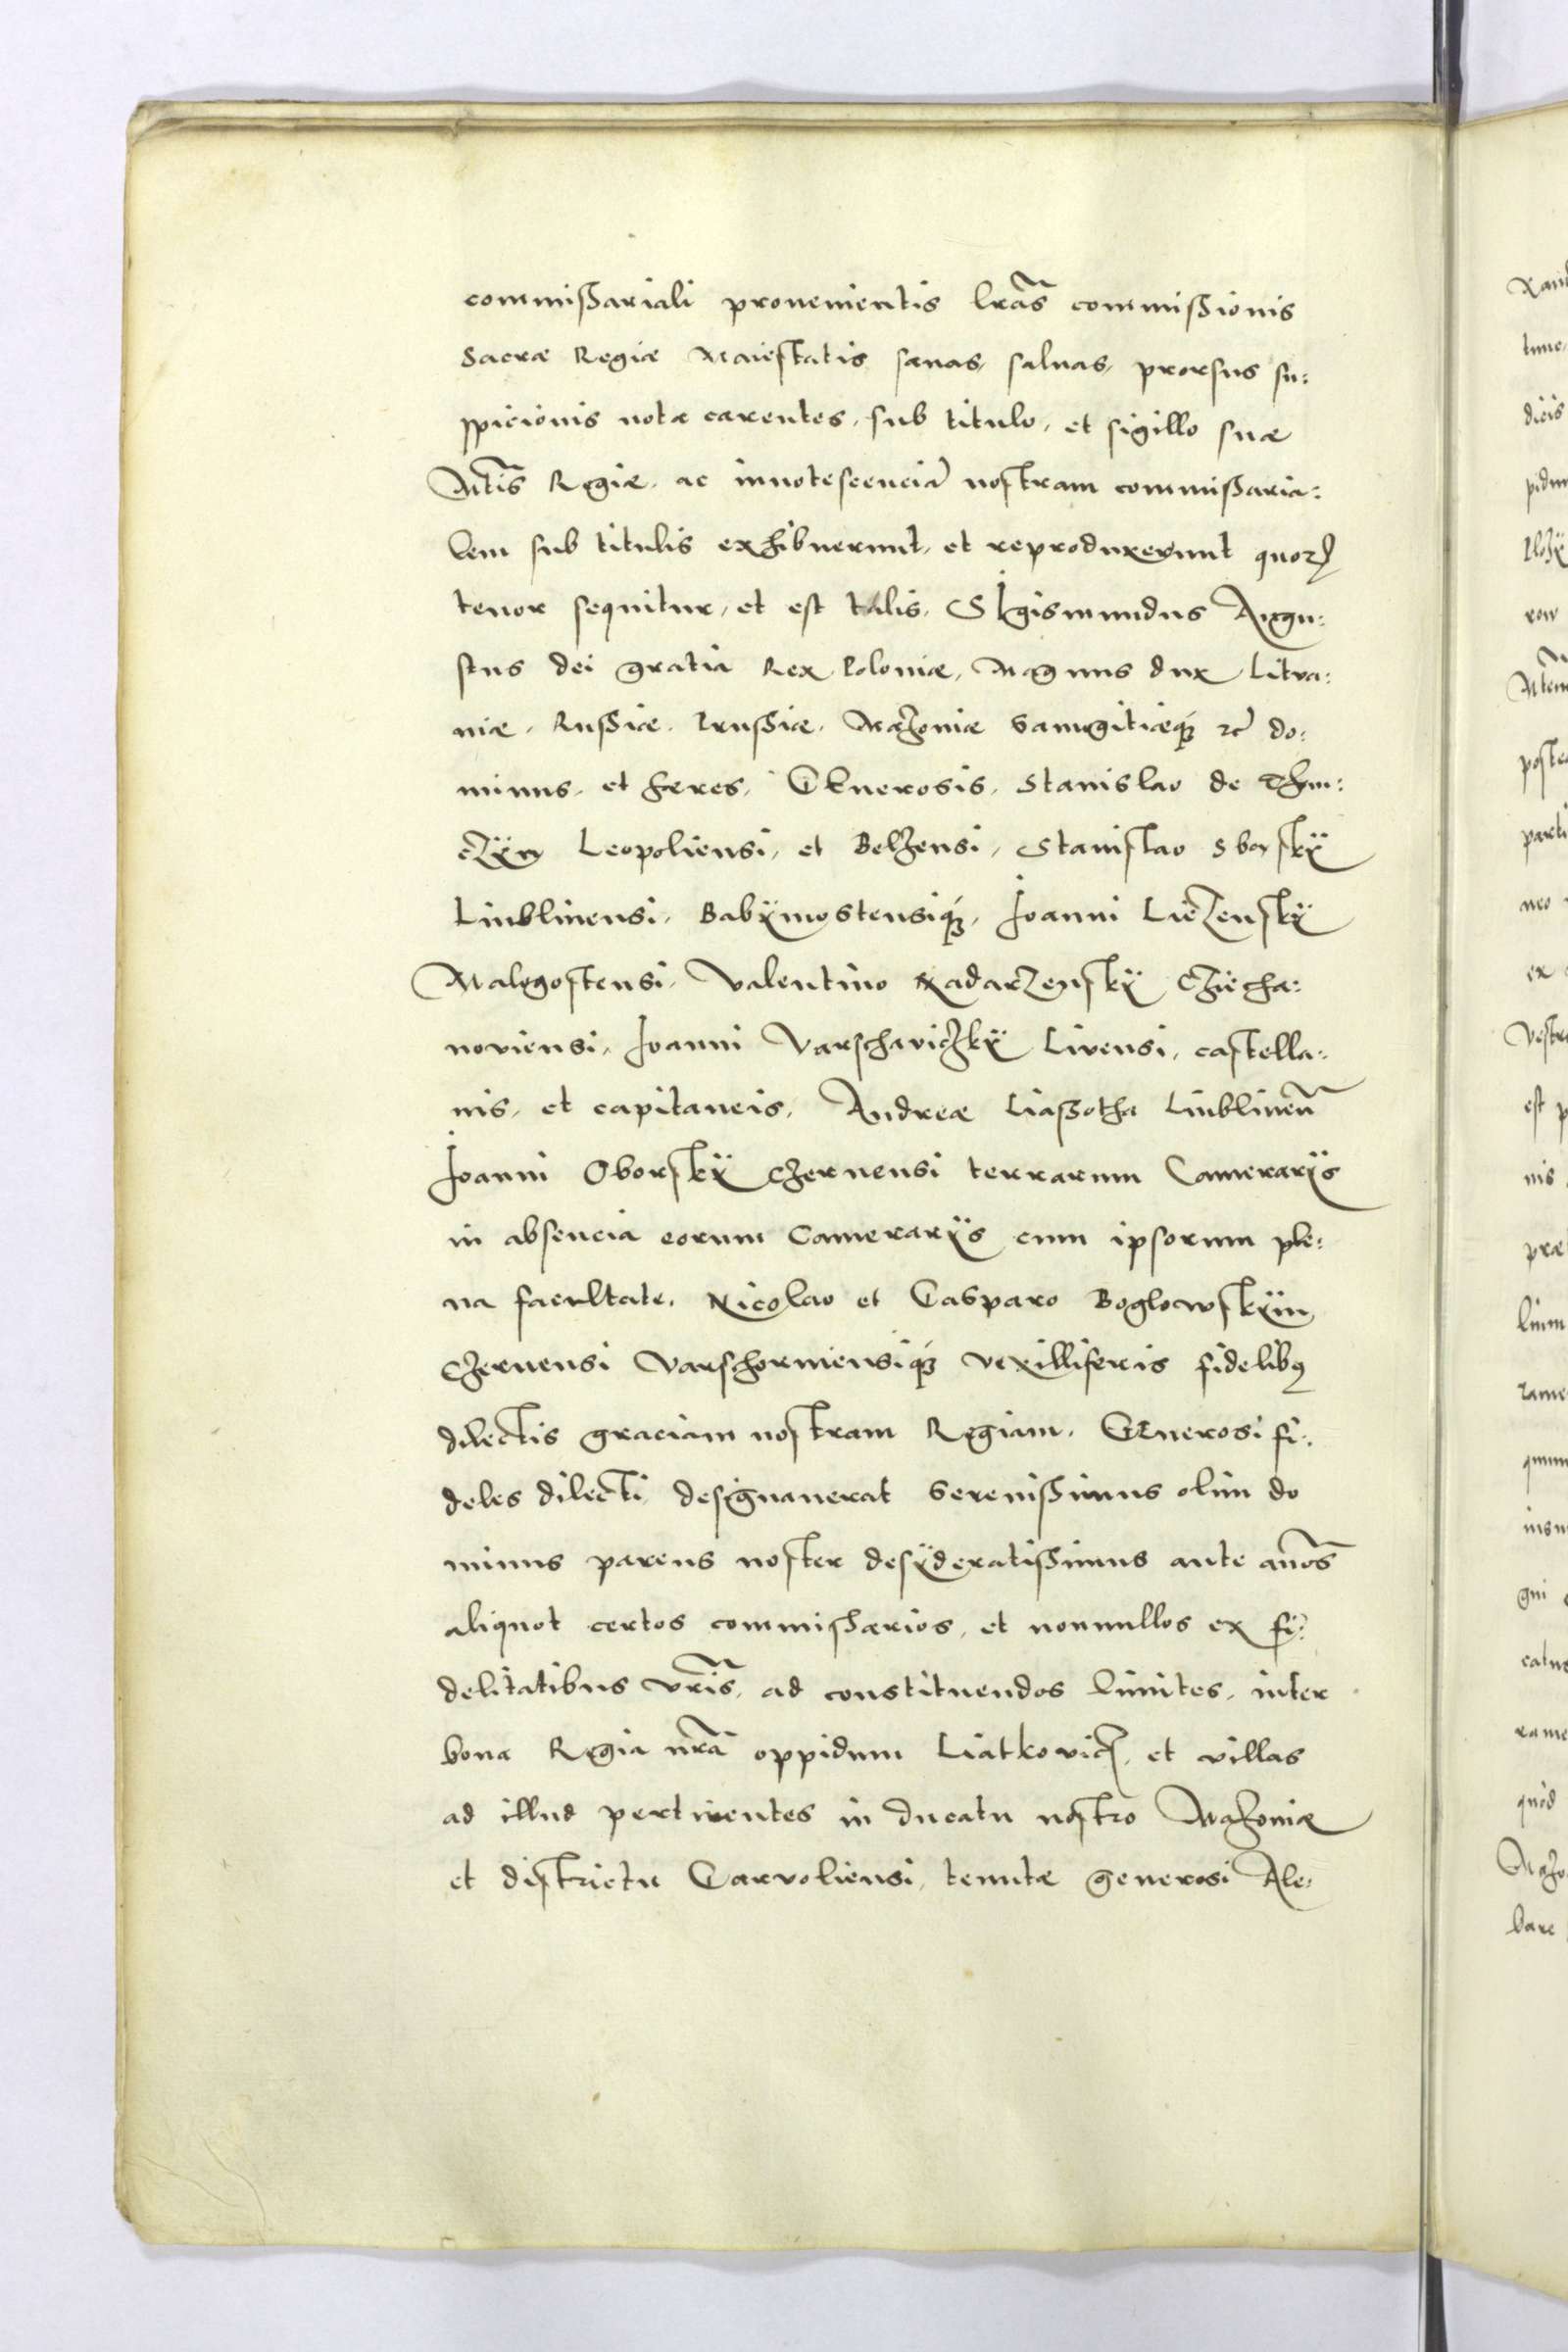 commißariali provenientis lrãs commißionis
Sacræ Regiæ Maiestatis sanas, saluas, prorsus su:
spicionis nota carentes, sub titulo, et sigillo suæ
Mtis Regiæ, ac innotescenciã nostram commißaria:
lem sub titulis exhibuerunt, et reproduxerunt quorꝝ
tenor sequitur, et est talis, SIgismundus Augu:
stus dei gratia Rex Poloniæ, Magnus dux Litva:
niæ, Rußiæ, Prußiæ, Mazoniæ Samogitiæqȝ ꝛc do:
minus, et hæres, GEnerosis, Stanislao de Thin:
czÿn Leopoliensi, et Belzensi, Stanislao Sborskÿ
Liublinensi, Babÿmostensiqȝ, Joanni Liezenskÿ
Malogostensi, Valentino NadarZenskÿ Cziecha:
noviensi, Joanni Varschaviczkÿ Livensi, castella:
nis, et capitaneis, Andreæ Liaßotha Liublineñ
Joanni Oborskÿ Czernensi terrarum Camerarÿs
in absencia eorum Camerarÿs cum ipsorum ple:
na facultate, Nicolao et Casparo Boglowskÿm
Czernensi Varschoviensiqȝ vexilliferis fidelibꝰ
dilectis graciam nostram Regiam. GEnerosi fi:
deles dilecti designauerat Serenißimus olim do
minus parens noster desÿderatißimus ante anõs
aliquot certos commißarios, et nonnullos ex fi:
delitatibus vrĩs, ad constituendos limites, inter
bona Regia nrã oppidum Liatkovicz, et villas
ad illud pertinentes in ducatu nostro Mazoniæ
et districtu Garvoliensi, tenutæ generosi Ale:
Xan
tunc
dicis
pidum
row
poste
parti
neo
ex
Vestr
est p
nis
præ
linm
rame
gni
catus
rame
quod
Mazo
bare